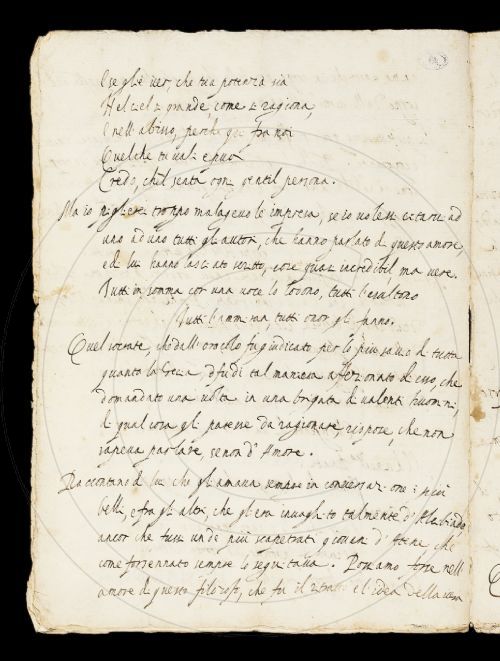 E se gliè uer, che tua potenza sia
Nel ciel sì grande, come si ragiona,
E nell' abisso, perche qui fra noi
Quel che tu val, e puoi
Credo, che'l senta ogni gentil persona.
Ma io piglierei troppo malageuole impresa, se io uolessi citarui ad
uno ad uno tutti gl'autori, che hanno parlato di questo amore,
ed di lui hanno lasciato scritto, cose quasi incredibili, ma uere.
Tutti in somma con una uoce lo lodono, tutti l'esaltono
Tutti l'ammiran tutti onor gli fanno.
Quel socrate, che dall' oracolo fu giudicato per lo più sauio di tutta
quanta la Grecia, fu di tal maniera affezionato di esso, che
domandato una uolta in una brigata di ualenti huomini,
di qual cosa gli paresse da ragionare, rispose, che non
sapeua parlare, se non d' Amore.
Raccontano di lui che gl'amaua sempre in conuersazione i più
belli, e fra gl'altri, che gl'era inuaghito talmente d' Alcibiade,
ancor che fusse uno de più scapestrati giouani d' Atene, che
come forsennato sempre lo seguitaua. Possiamo forse nell'
amore di questo filosofo, che fu il ritratto e l'idea della uera